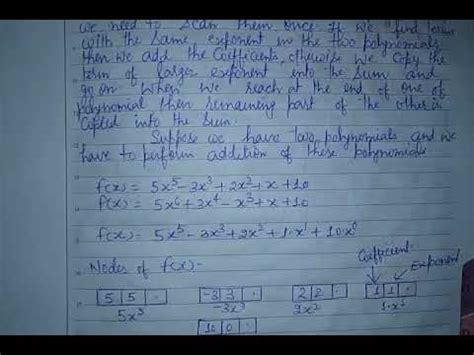 we need to scan them once If we find terms
with the same exponent in the two polynomials
then we add the coefficients, otherwise we copy the
term of larger exponent into the sum and
go on When we reach at the end of one of
polynomial then remaining part of the other is
copied into the sum.
Suppose we have two polynomials and we
have to perform addition of these polynomials
f(x) = 5x⁵-3x³+2x²+x+10
f(x) = 5x⁶+3x⁴-x³+x+10
f(x) = 5x⁵-3x³+2x²+1·x¹+10x⁰
Coefficient
Nodes of f(x)- Exponent
5 5 · -3 3 · 2 2 · 1 1 ·
5x⁵ -3x³ 2x² 1·x¹
10 0 ·